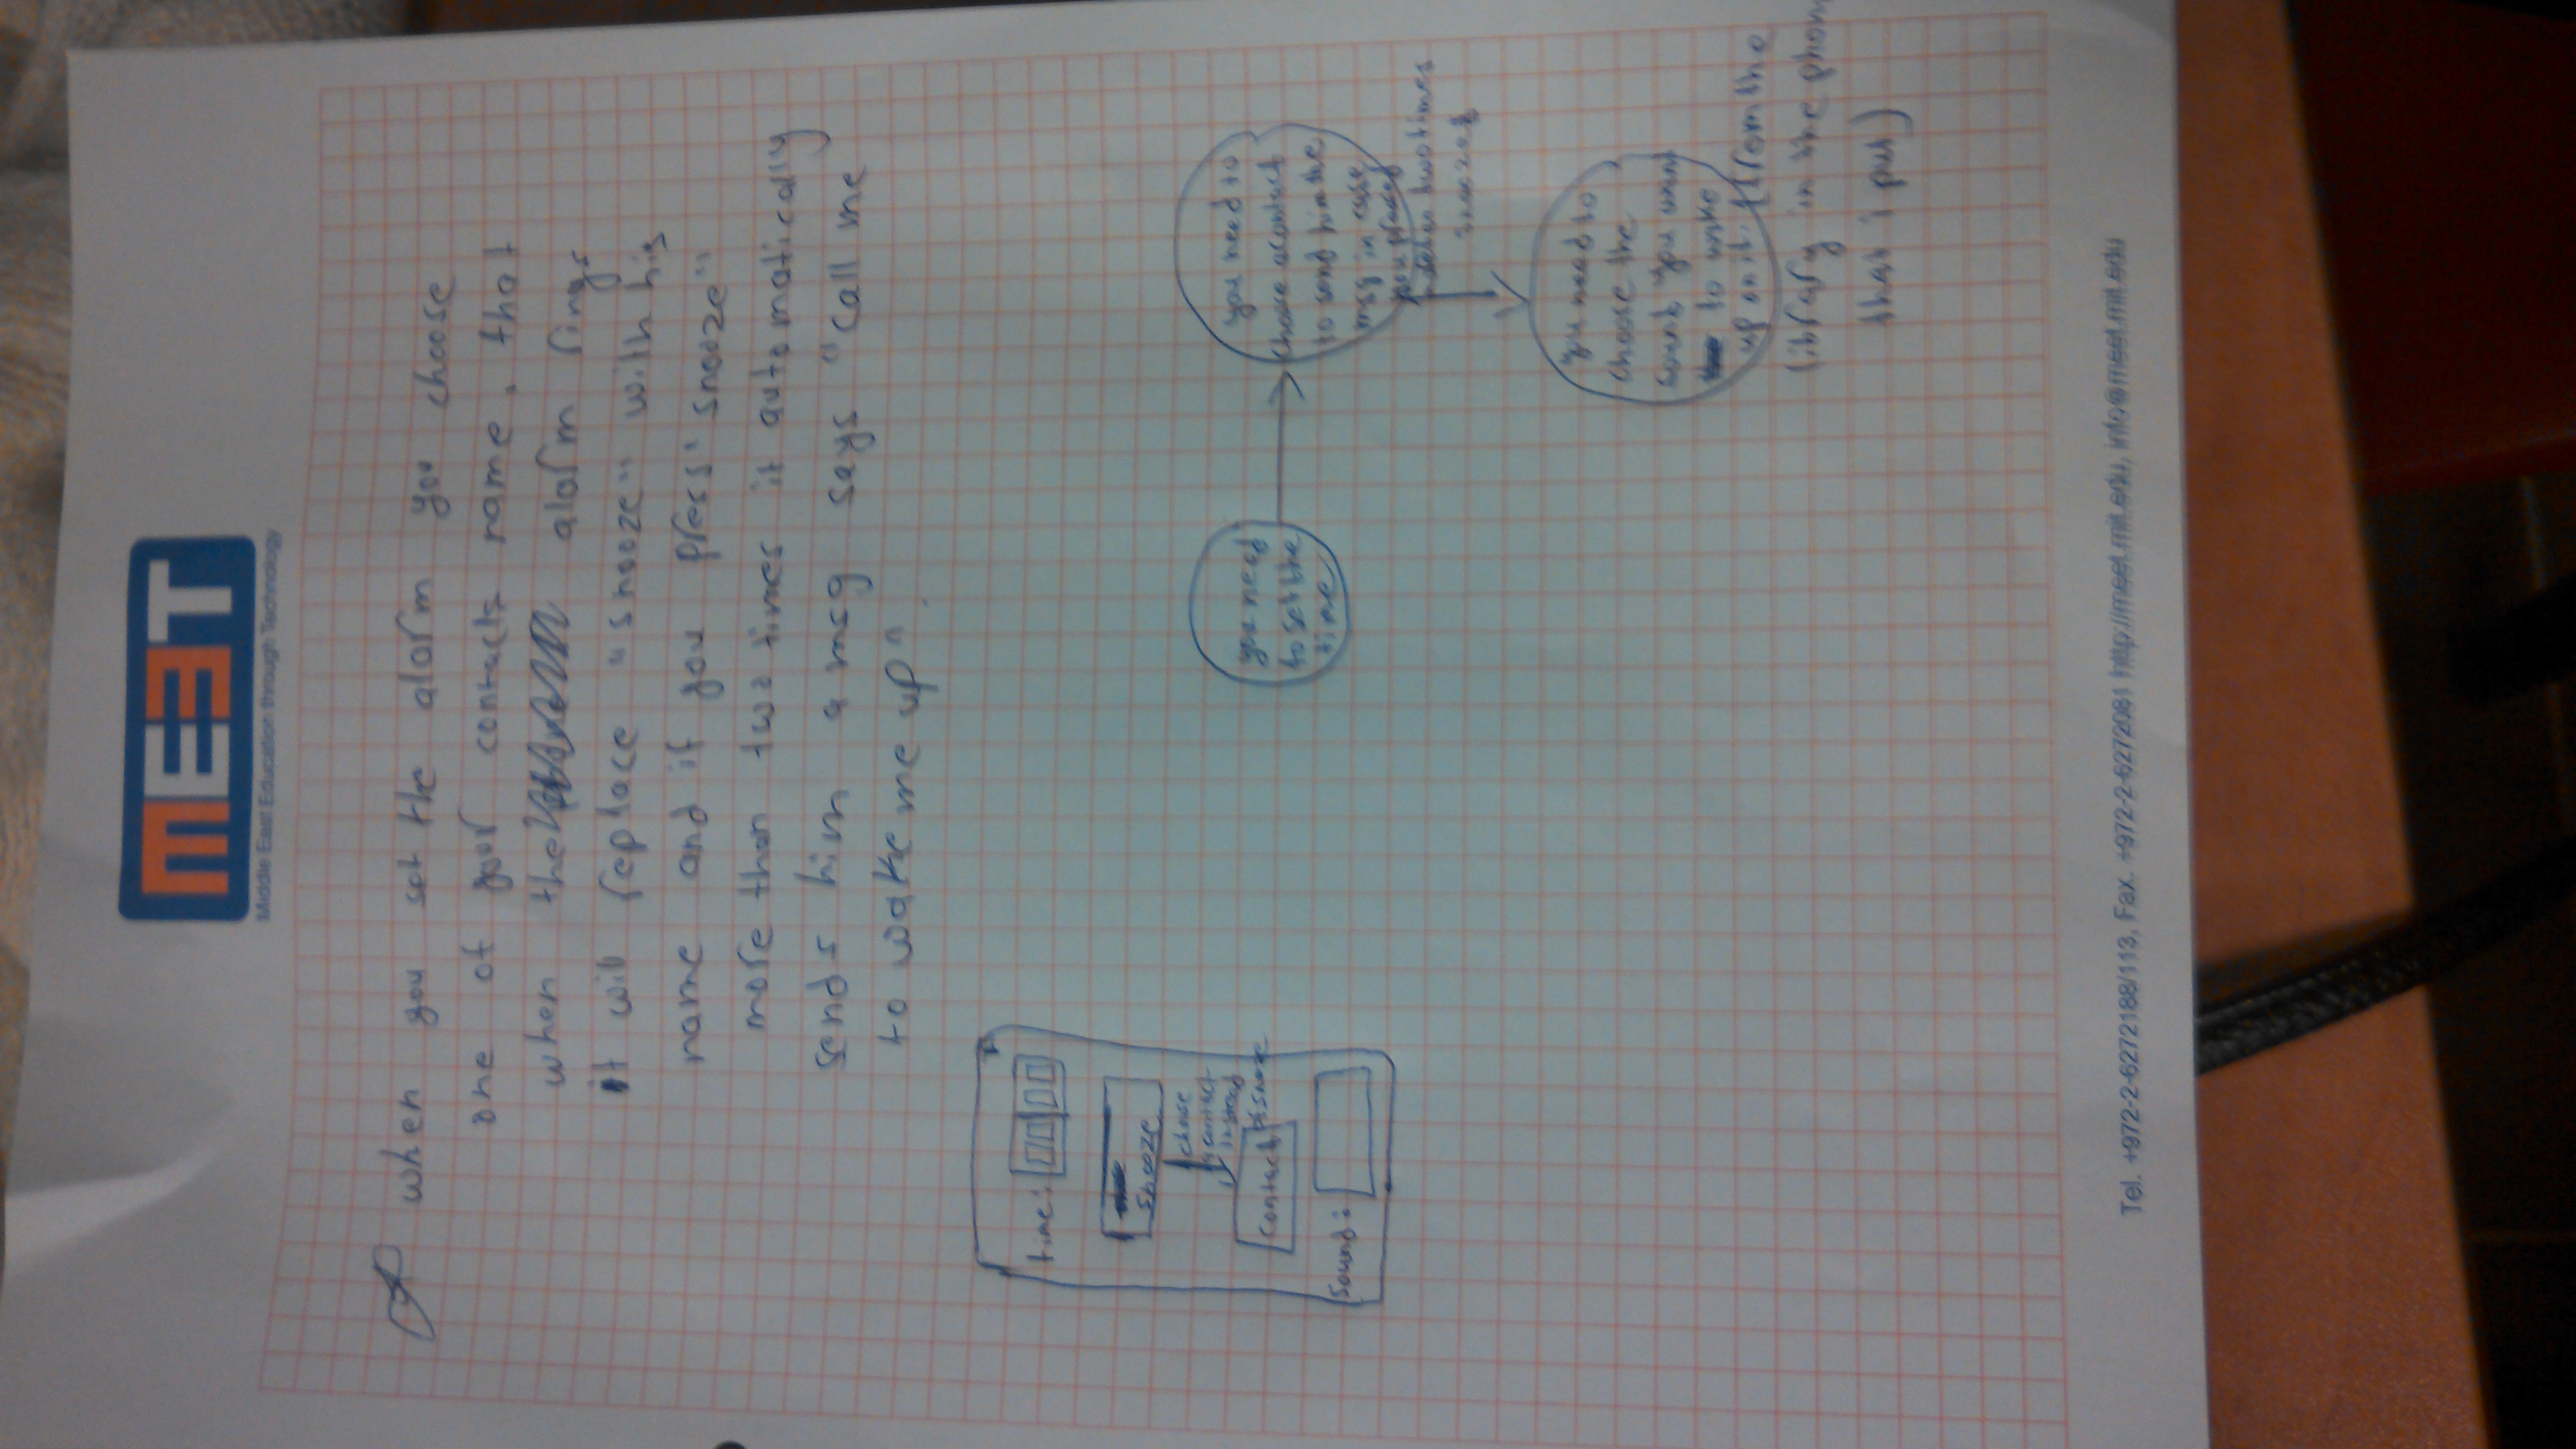 MEET
Middle East Education through Technology
when you set the alarm you choose
one of your contacts name. that
when the alarm rings
it will replace "snooze" with his
name and if you press "snooze"
more than two times it automatically
sends him a msg says "call me
to wake me up".
time:
Snooze
chose
a contact
instead
of snooze
contact
Sound:
you need
to set the
time
you need to
choose a contact
to send him the
msg in case
you pressed
more than two times
snooze
you need to
choose the
sound you want
to wake
up on it. (from the
library in the phone
that i put)
Tel. +972-2-6272188/113, Fax. +972-2-6272081 http://meet.mit.edu, info@meet.mit.edu